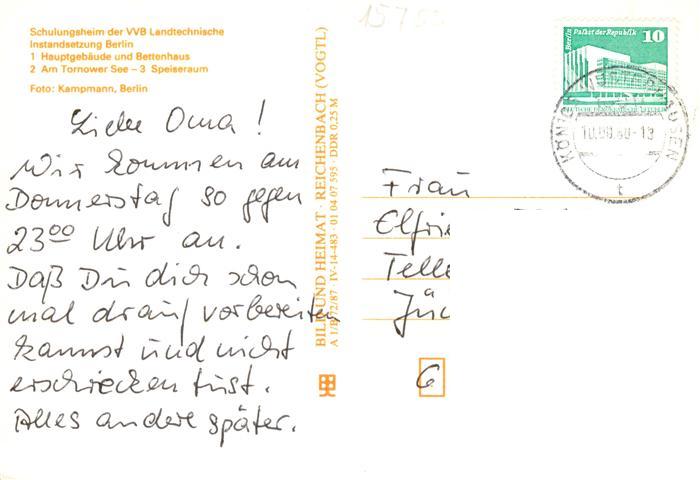 Schulungsheim der VVB Landtechnische
Instandsetzung Berlin
1 Hauptgebäude und Bettenhaus
2 Am Tornower See – 3 Speiseraum
Foto: Kampmann, Berlin
Liebe Oma!
Wir kommen am
Donnerstag so gegen
23⁰⁰ Uhr an.
Daß Du dich schon
mal drauf vorbereiten
kannst und nicht
erschrecken tust.
Alles andere später.
BILD UND HEIMAT · REICHENBACH (VOGTL)
A 1/B 72/87 · IV-14-483 · 01 04 07 595 · DDR 0,25 M
Berlin Palast der Republik 10
Frau
Elfrie
Telle
Jüc
6